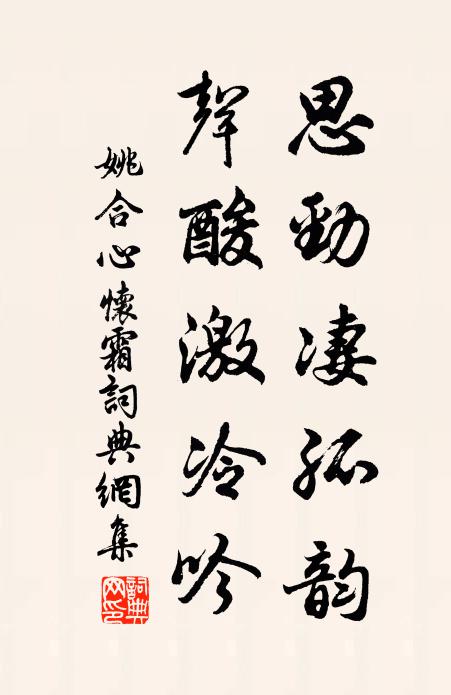 思勁凄孤韵
聲酸激冷吟
姚合心懷霜詞典網集
詞典网印